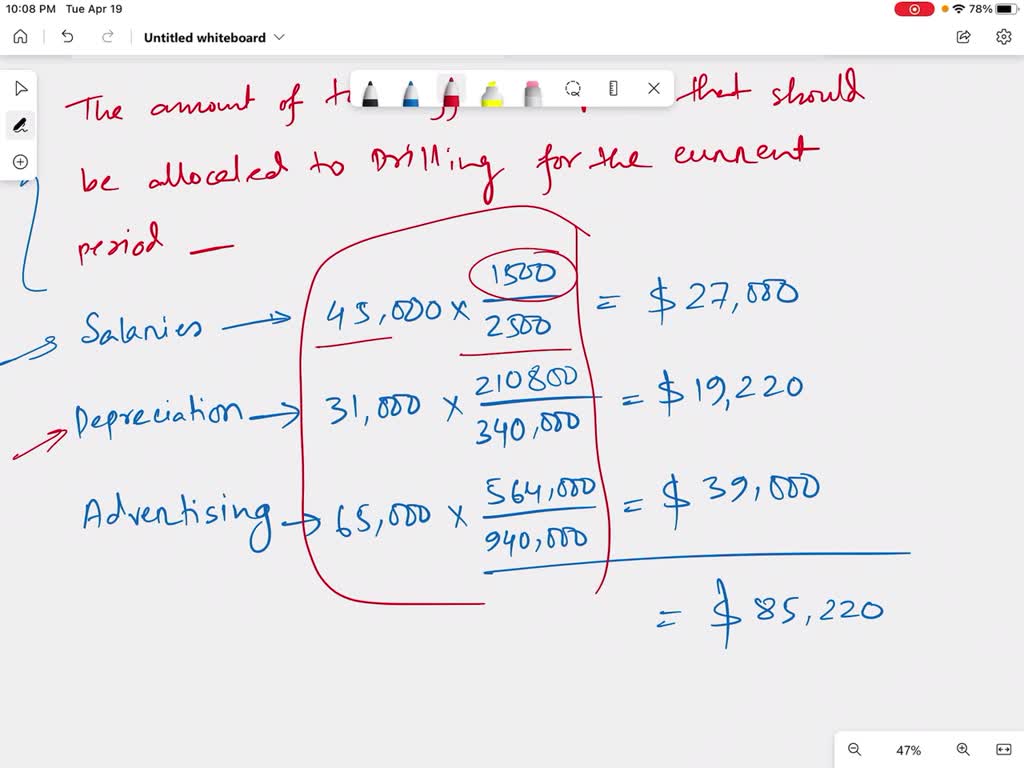 10:08 PM Tue Apr 19
78%
Untitled whiteboard
The amount of that should
be alloceled to Drilling for the current
period —
Salaries → 45,000 × 1500/2500 = $27,000
Depreciation → 31,000 × 210800/340,000 = $19,220
Advertising → 65,000 × 564,000/940,000 = $39,000
= $85,220
47%